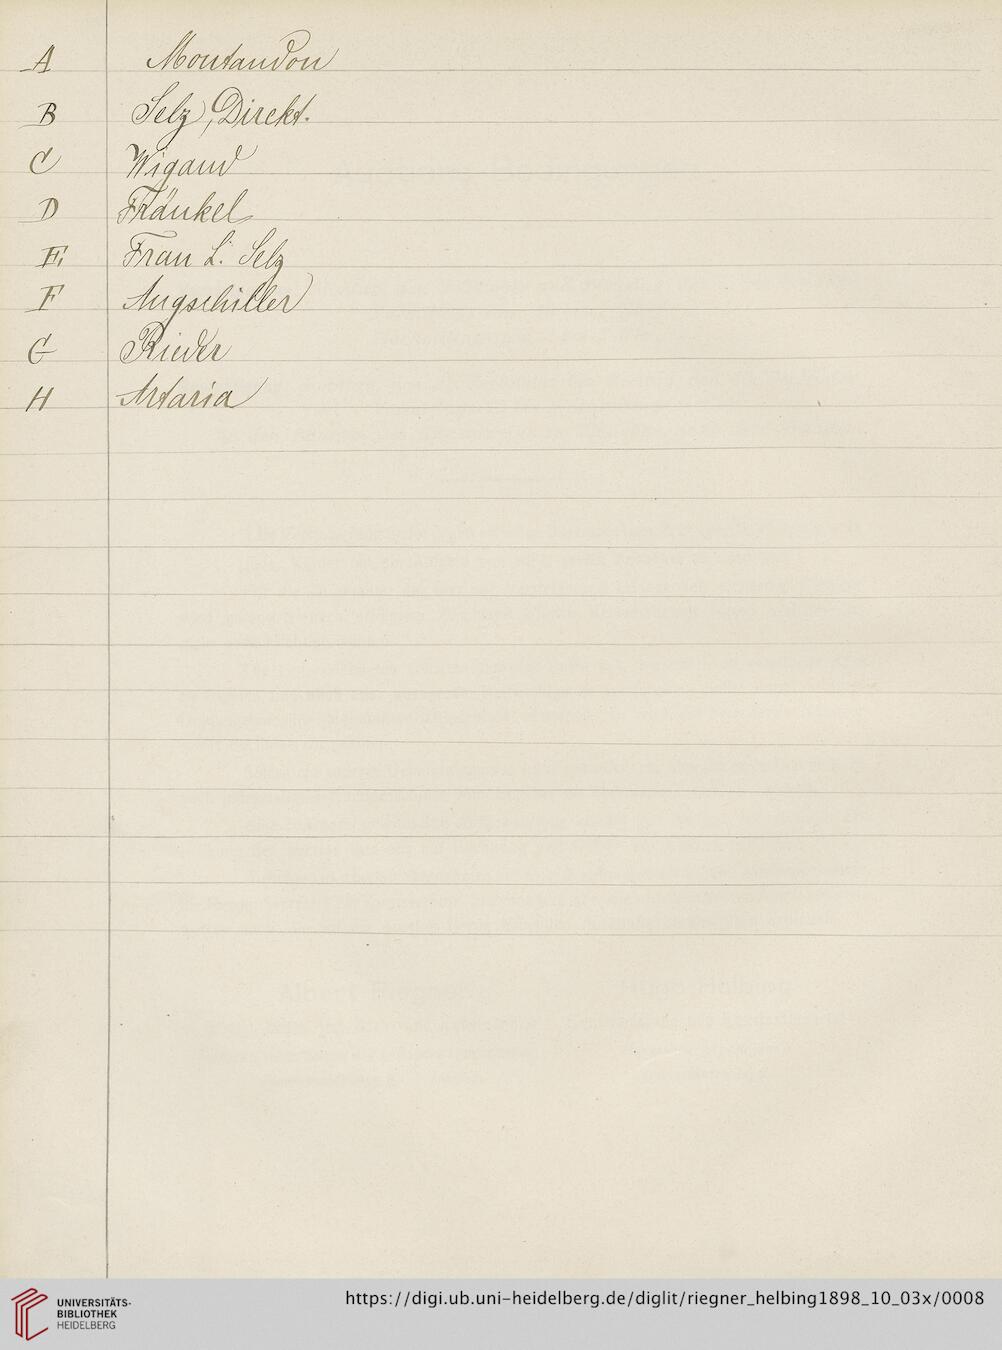 A Montandon
B Selz, Direkt.
C Wigand
D Fränkel
E. Frau L. Selz
F Augschiller
G Rieder
H Artaria
Albert Riegner
Hugo Helbing
https://digi.ub.uni-heidelberg.de/diglit/riegner_helbing1898_10_03x/0008
UNIVERSITÄTS-
BIBLIOTHEK
HEIDELBERG